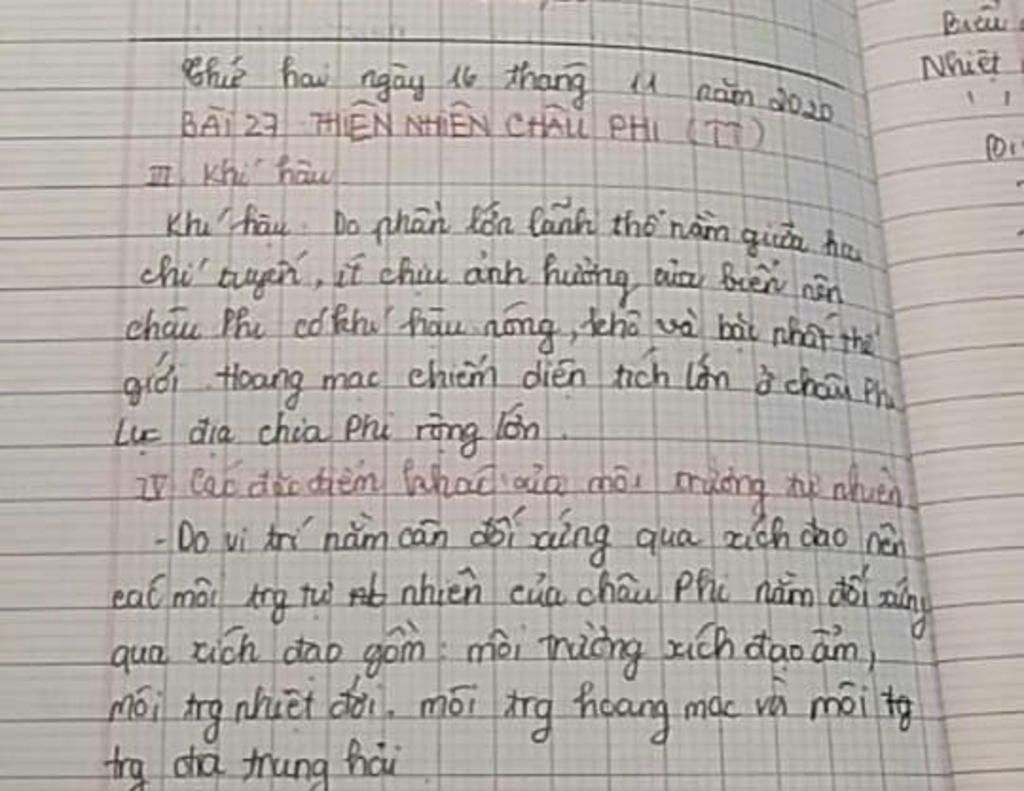 Thứ hai ngày 16 tháng 11 năm 2020
BÀI 27 THIÊN NHIÊN CHÂU PHI (TT)
III Khí hậu
Khí hậu. Do phần lớn lãnh thổ nằm giữa hai
chí tuyến, ít chịu ảnh hưởng của biển nên
châu Phi có khí hậu nóng, khô và bậc nhất thế
giới. Hoang mạc chiếm diện tích lớn ở châu Phi
Lục địa chia Phi rộng lớn.
IV Các đặc điểm khác của môi trường tự nhiên
- Do vị trí nằm cân đối xứng qua xích đạo nên
các môi trg tự nhiên của châu Phi nằm đối xứng
qua xích đạo gồm: môi trường xích đạo ẩm,
môi trg nhiệt đới. môi trg hoang mạc và môi tg
trg địa trung hải
Biểu
Nhiệt